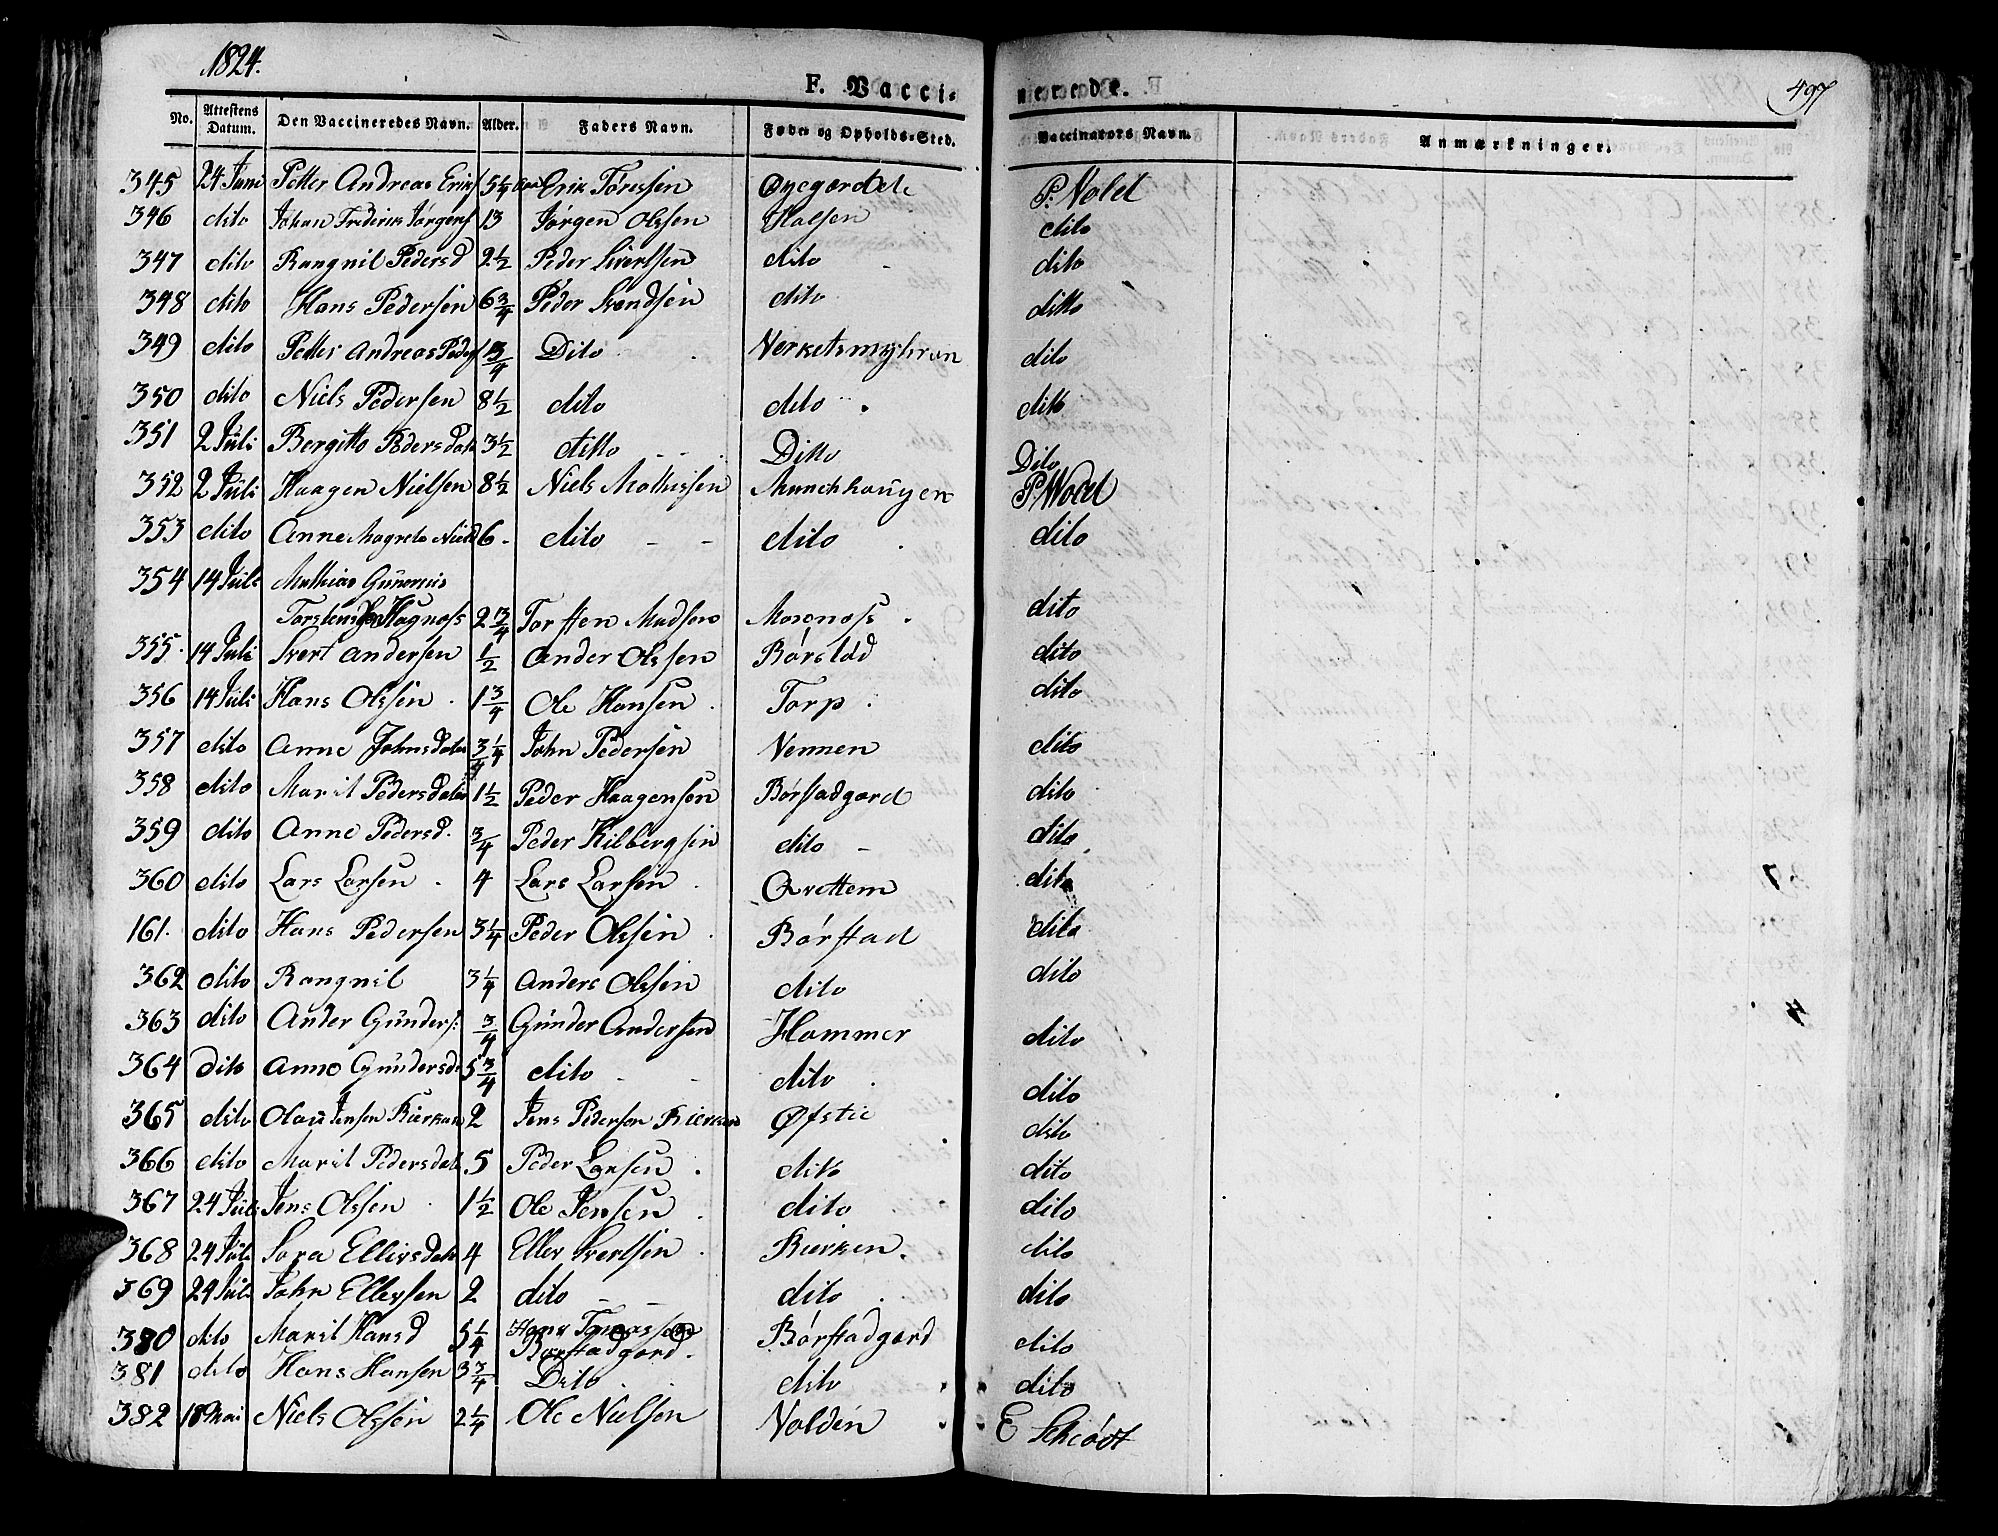 1824.
F. Vacci-
nerede.
497
No. Attestens Datum. Den Vaccineredes Navn. Alder. Faders Navn. Føde- og Opholds-Sted. Vaccinators Navn. Anmærkninger.
345 24 Juni Petter Andreas Eriks 5 1/4 Erik Töressen Øyegardele P: Nolet
346 dito Johan Frederik Jörgens 13 Jörgen Olssen Halsen dito
347 dito Rangnil Pedersd 2 1/2 Peder Sivertsen dito dito
348 dito Hans Pedersen 6 3/4 Peder Svendsen dito ditto
349 dito Petter Andreas Peders 3/4 Dito Verketsmyhran dito
350 dito Niels Pedersen 8 1/2 dito dito ditto
351 2 Juli Bergitto Pedersdater 3 1/2 ditto Ditto Dito
352 2 Juli Haagen Nielsen 8 1/2 Niels Mathissen Munckhaugen P Nolet
353 dito Anne Magreta Nielsd 6 dito dito dito
354 14 Juli Mathias Gunerius
Torstensen Hagnoss 2 3/4 Torsten Madsen Moxnoss dito
355 14 Juli Sivert Andersen 1/2 Ander Olssen Börstad dito
356 14 Juli Hans Olssen 1 3/4 Ole Hansen Torp dito
357 dito Anne Johnsdater 3 1/4 John Pedersen Vennen dito
358 dito Marit Pedersdater 1 1/2 Peder Haagensen Börsadgard dito
359 dito Anne Pedersd. 3/4 Peder Kilbergsen dito dito
360 dito Lars Larsen 4 Lars Larsen Qvettem dito
161. dito Hans Pedersen 3 1/4 Peder Olssen Börstad dito
362 dito Rangnil 3 1/4 Anders Olssen dito dito
363 dito Ander Gunders: 3/4 Gunder Andersen Hammer dito
364 dito Anne Gundersd 5 3/4 dito dito dito
365 dito Olaus Jensen Kierkan 2 Jens Pederson Bierken Øfstie dito
366 dito Marit Pedersdat 5 Peder Larsen dito dito
367 24 Juli Jens Olssen 1 1/2 Ole Jensen dito dito
368 24 Juli Sara Ellersdat 4 Eller Ivertsen Bierken. dito
369 24 Juli John Ellersen 2 dito dito dito
380 dito Marit Hansd 5 1/4 Hans Tomassen Börstadgard. Börstadgard dito
381 dito Hans Hansen 3 3/4 Dito dito dito
382 18 Mai Niels Olssen 2 1/4 Ole Nielsen Valden E Schiödt